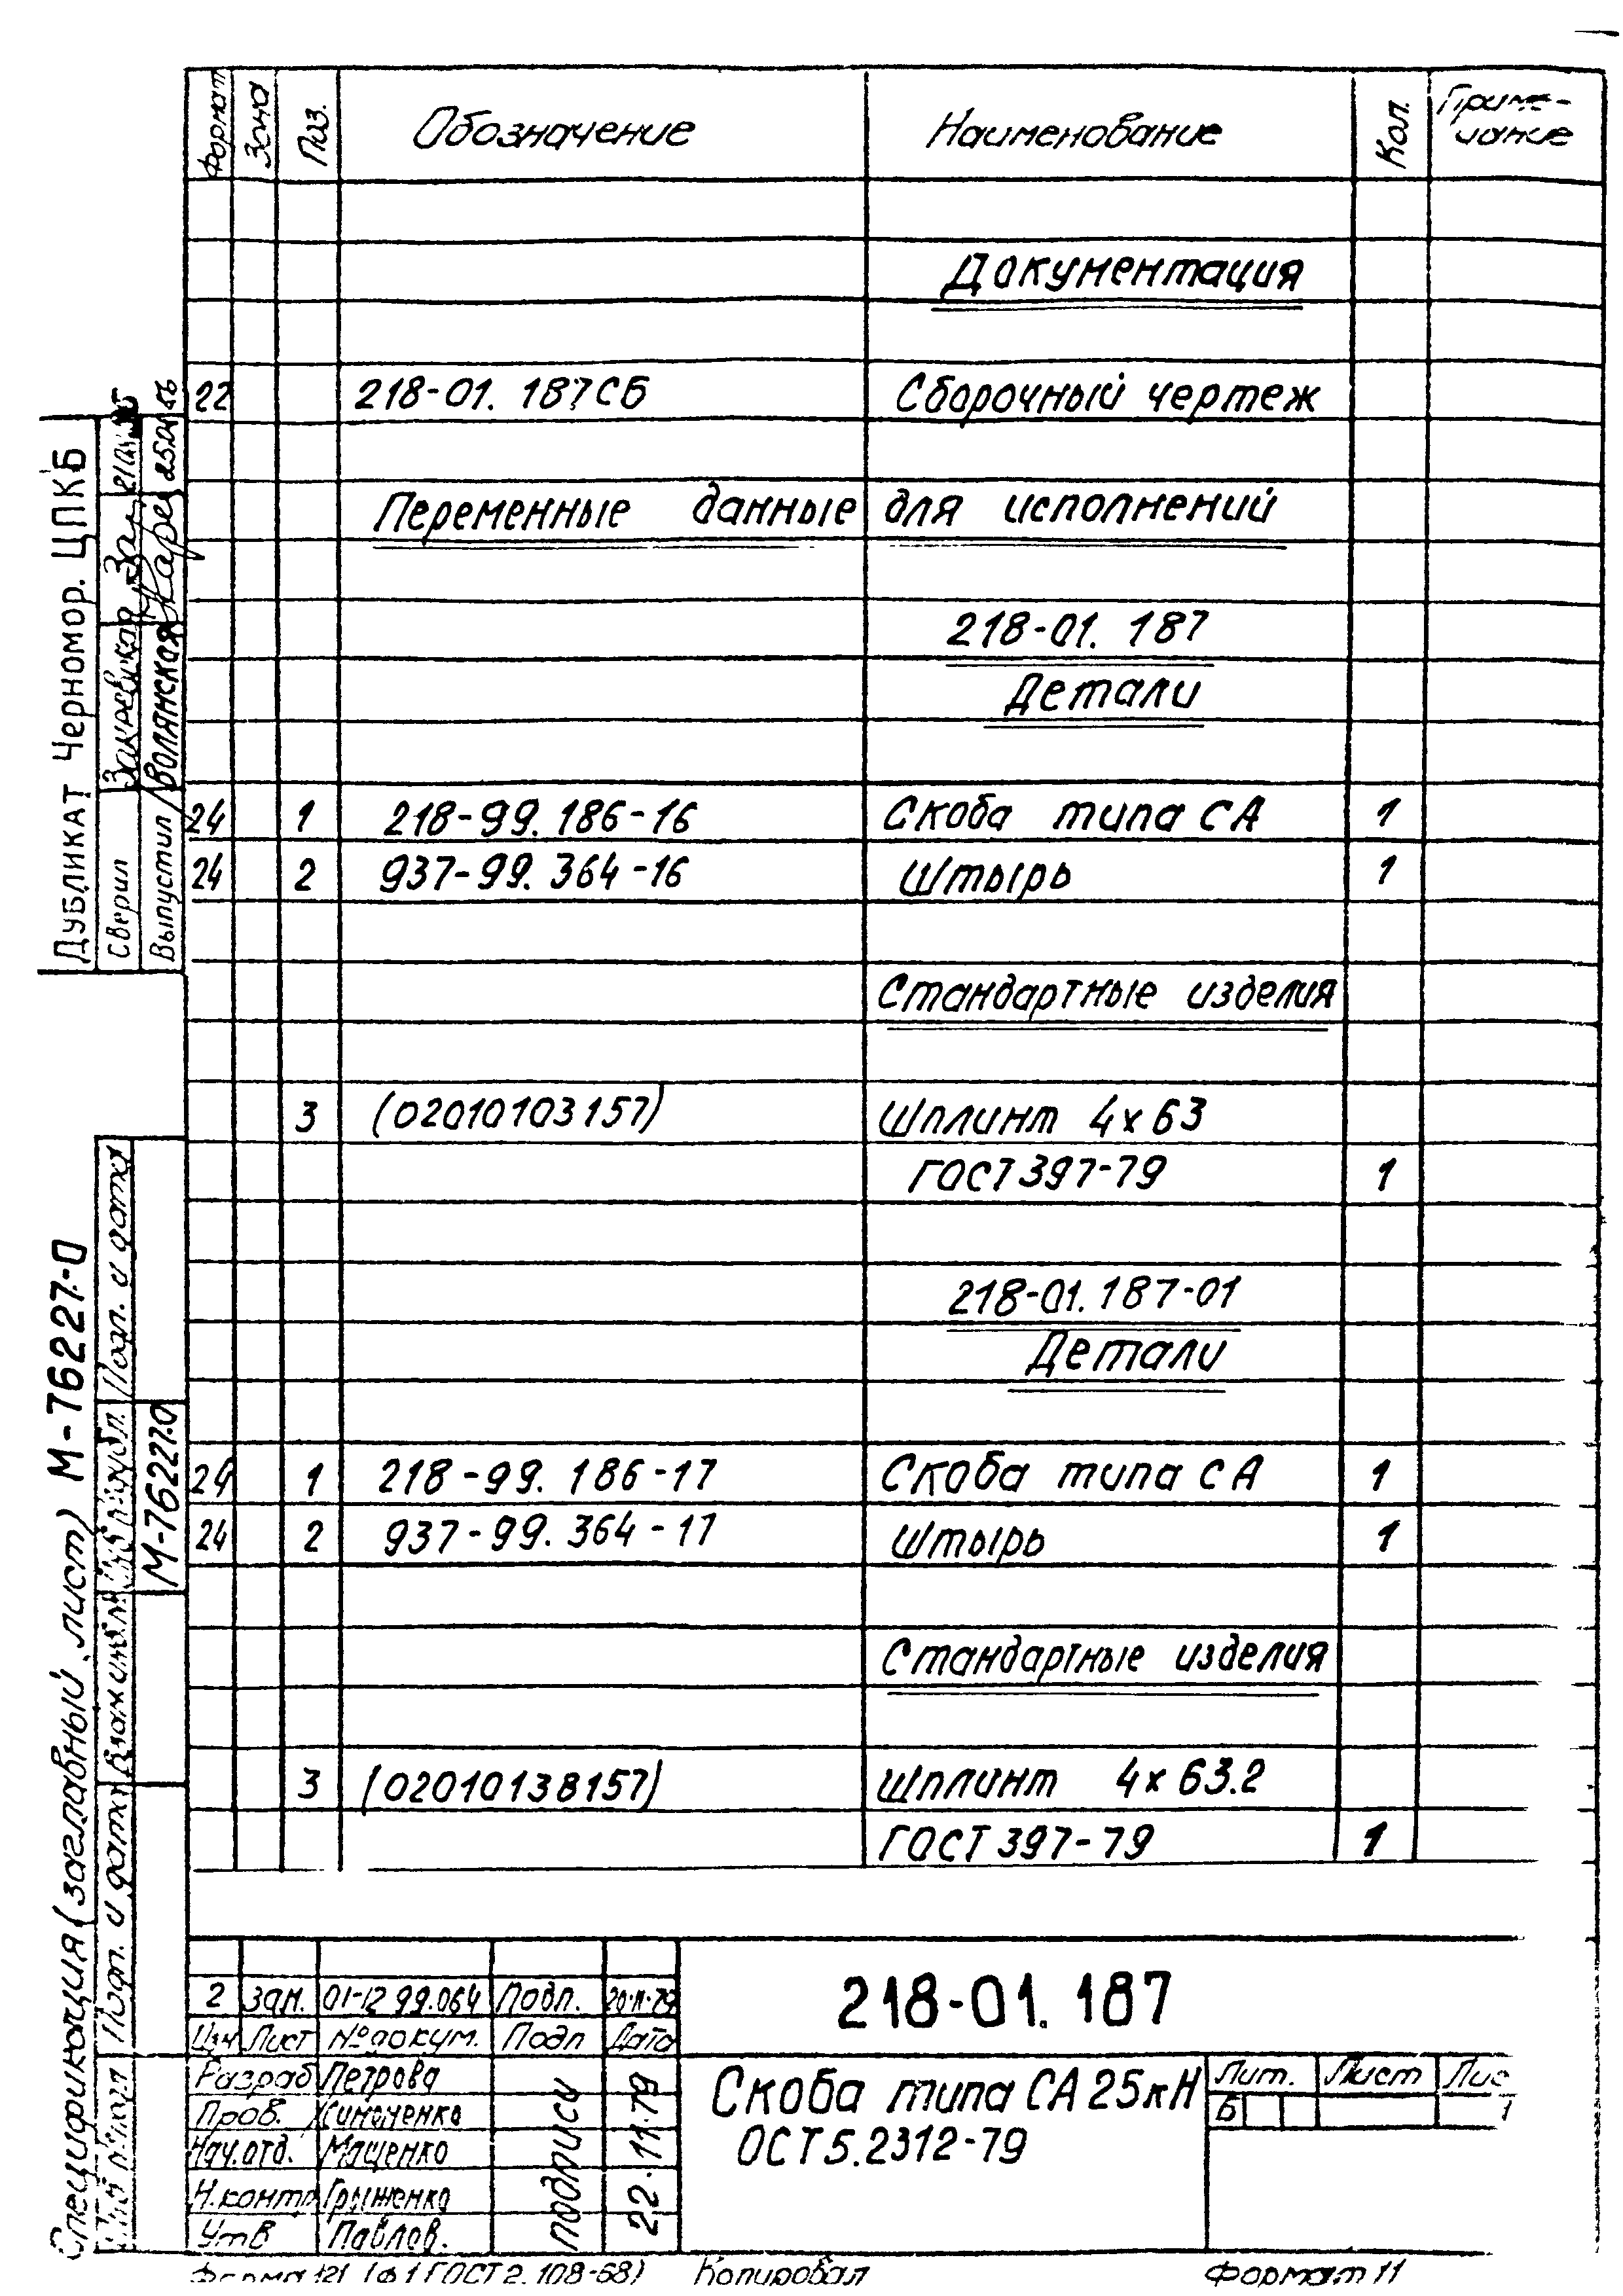 Формат Зона Поз. Обозначение Наименование Кол. Приме-
чание
Документация
22 218-01. 187СБ Сборочный чертеж
Переменные данные для исполнений
218-01. 187
Детали
24 1 218-99. 186-16 Скоба типа СА 1
24 2 937-99. 364-16 Штырь 1
Стандартные изделия
3 (02010103157) Шплинт 4х63
ГОСТ 397-79 1
218-01. 187-01
Детали
24 1 218-99. 186-17 Скоба типа СА 1
24 2 937-99. 364-17 Штырь 1
Стандартные изделия
3 (02010138157) Шплинт 4х63.2
ГОСТ 397-79 1
2 Зам. 01-12 99.064 Подп. 20.11.79
Изм Лист № докум. Подп Дата
218-01. 187
Разраб Петрова
Пров. Симоненко
Нач.отд. Мащенко
Н.контр Грыженко
Утв Павлов.
подписи
22.11.79
Скоба типа СА 25кН
ОСТ5.2312-79
Лит. Лист Лис
Б 1
Форма 121 (ф1 ГОСТ 2.108-68) Копировал Формат 11
Дубликат Черномор. ЦПКБ
Сверил Закревская
Выпустил Волянская
Спецификация (заглавный лист) М-76227.0
Подп. и дата
М-76227.0
Взам инв.
Подп. и дата